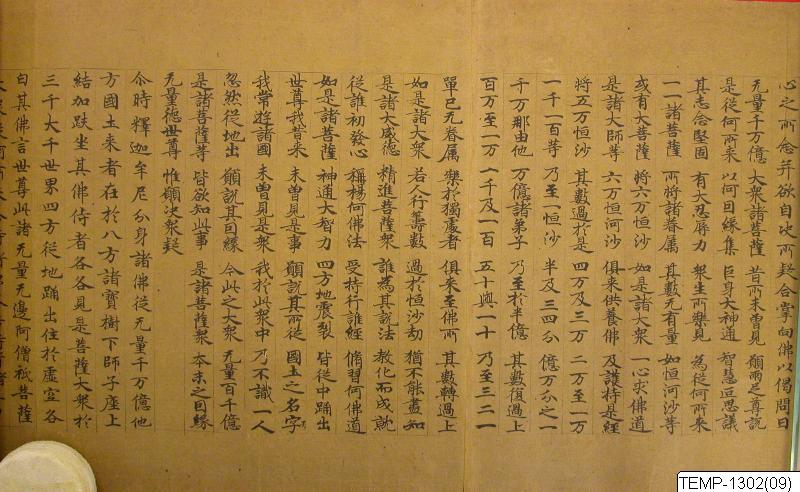 心之所念并欲自決所疑合掌向佛以偈問曰
无量千万億 大衆諸菩薩 昔所未曽見 願兩足尊說
是從何所来 以何因縁集 巨身大神通 智慧叵思議
其志念堅固 有大忍辱力 衆生所樂見 為從何所来
一一諸菩薩 所將諸眷属 其數无有量 如恒河沙等
或有大菩薩 將六万恒沙 如是諸大衆 一心求佛道
是諸大師等 六万恒河沙 俱来供養佛 及護持是經
將五万恒沙 其數過於是 四万及三万 二万至一万
一千一百等 乃至一恒沙 半及三四分 億万分之一
千万那由他 万億諸弟子 乃至於半億 其數復過上
百万至一万 一千及一百 五十與一十 乃至三二一
單己无眷属 樂於獨處者 俱来至佛所 其數轉過上
如是諸大衆 若人行籌數 過於恒沙劫 猶不能盡知
是諸大威德 精進菩薩衆 誰為其說法 教化而成就
從誰初發心 稱楊何佛法 受持行誰經 脩習何佛道
如是諸菩薩 神通大智力 四方地震裂 皆從中踊出
世尊我昔来 未曽見是事 願說其所從 國土之名字
我常遊諸國 未曽見是衆 我於此衆中 乃不識一人
忽然從地出 願說其因縁 今此之大衆 无量百千億
是諸菩薩等 皆欲知此事 是諸菩薩衆 本末之因縁
无量德世尊 惟願決衆疑
尒時釋迦牟尼分身諸佛從无量千万億他
方國土来者在於八方諸寶樹下師子座上
結加趺坐其佛侍者各各見是菩薩大衆於
三千大千世界四方從地踊出住於虛空各
白其佛言世尊此諸无量无邊阿僧祇菩薩
TEMP-1302(09)